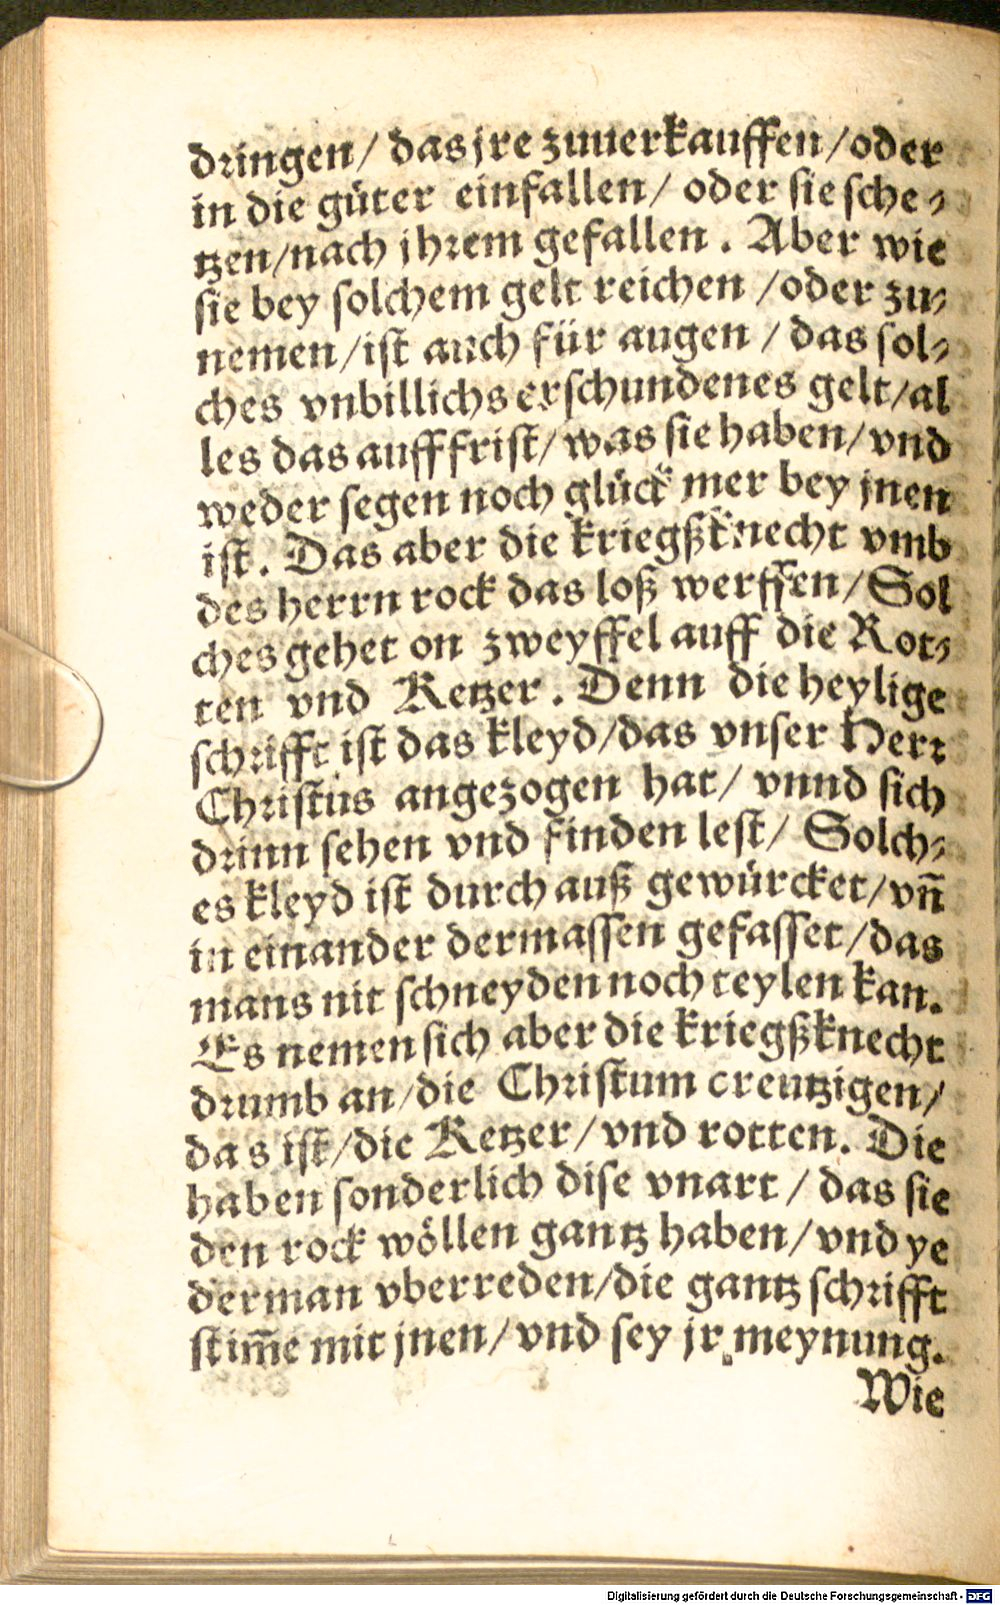 dringen/ das jre zuuerkauffen/oder
in die güter einfallen/ oder sie sche⸗
tzen/nach jhrem gefallen. Aber wie
sie bey solchem gelt reichen /oder zu⸗
nemen/ist auch für augen / das sol⸗
ches vnbillichs erschundenes gelt/al
les das auff frist/was sie haben/vnd
weder segen noch glück mer bey jnen
ist. Das aber die kriegßknecht vmb
des herrn rock das loß werffen/Sol
ches gehet on zweyffel auff die Rot⸗
ten vnd Ketzer. Denn die heylige
schrifft ist das kleyd/das vnser Herr
Christus angezogen hat/ vnnd sich
drinn sehen vnd finden lest/ Solch⸗
es kleyd ist durch auß gewürcket/vñ
in einander dermassen gefasset/das
mans nit schneyden noch teylen kan.
Es nemen sich aber die kriegßknecht
drumb an/die Christum creutzigen/
das ist/die Ketzer/vnd rotten. Die
haben sonderlich dise vnart / das sie
den rock wöllen gantz haben/vnd ye
derman vberreden/die gantz schrifft
stim̃e mit jnen/vnd sey jr meynung.
Wie
Digitalisierung gefördert durch die Deutsche Forschungsgemeinschaft - DFG